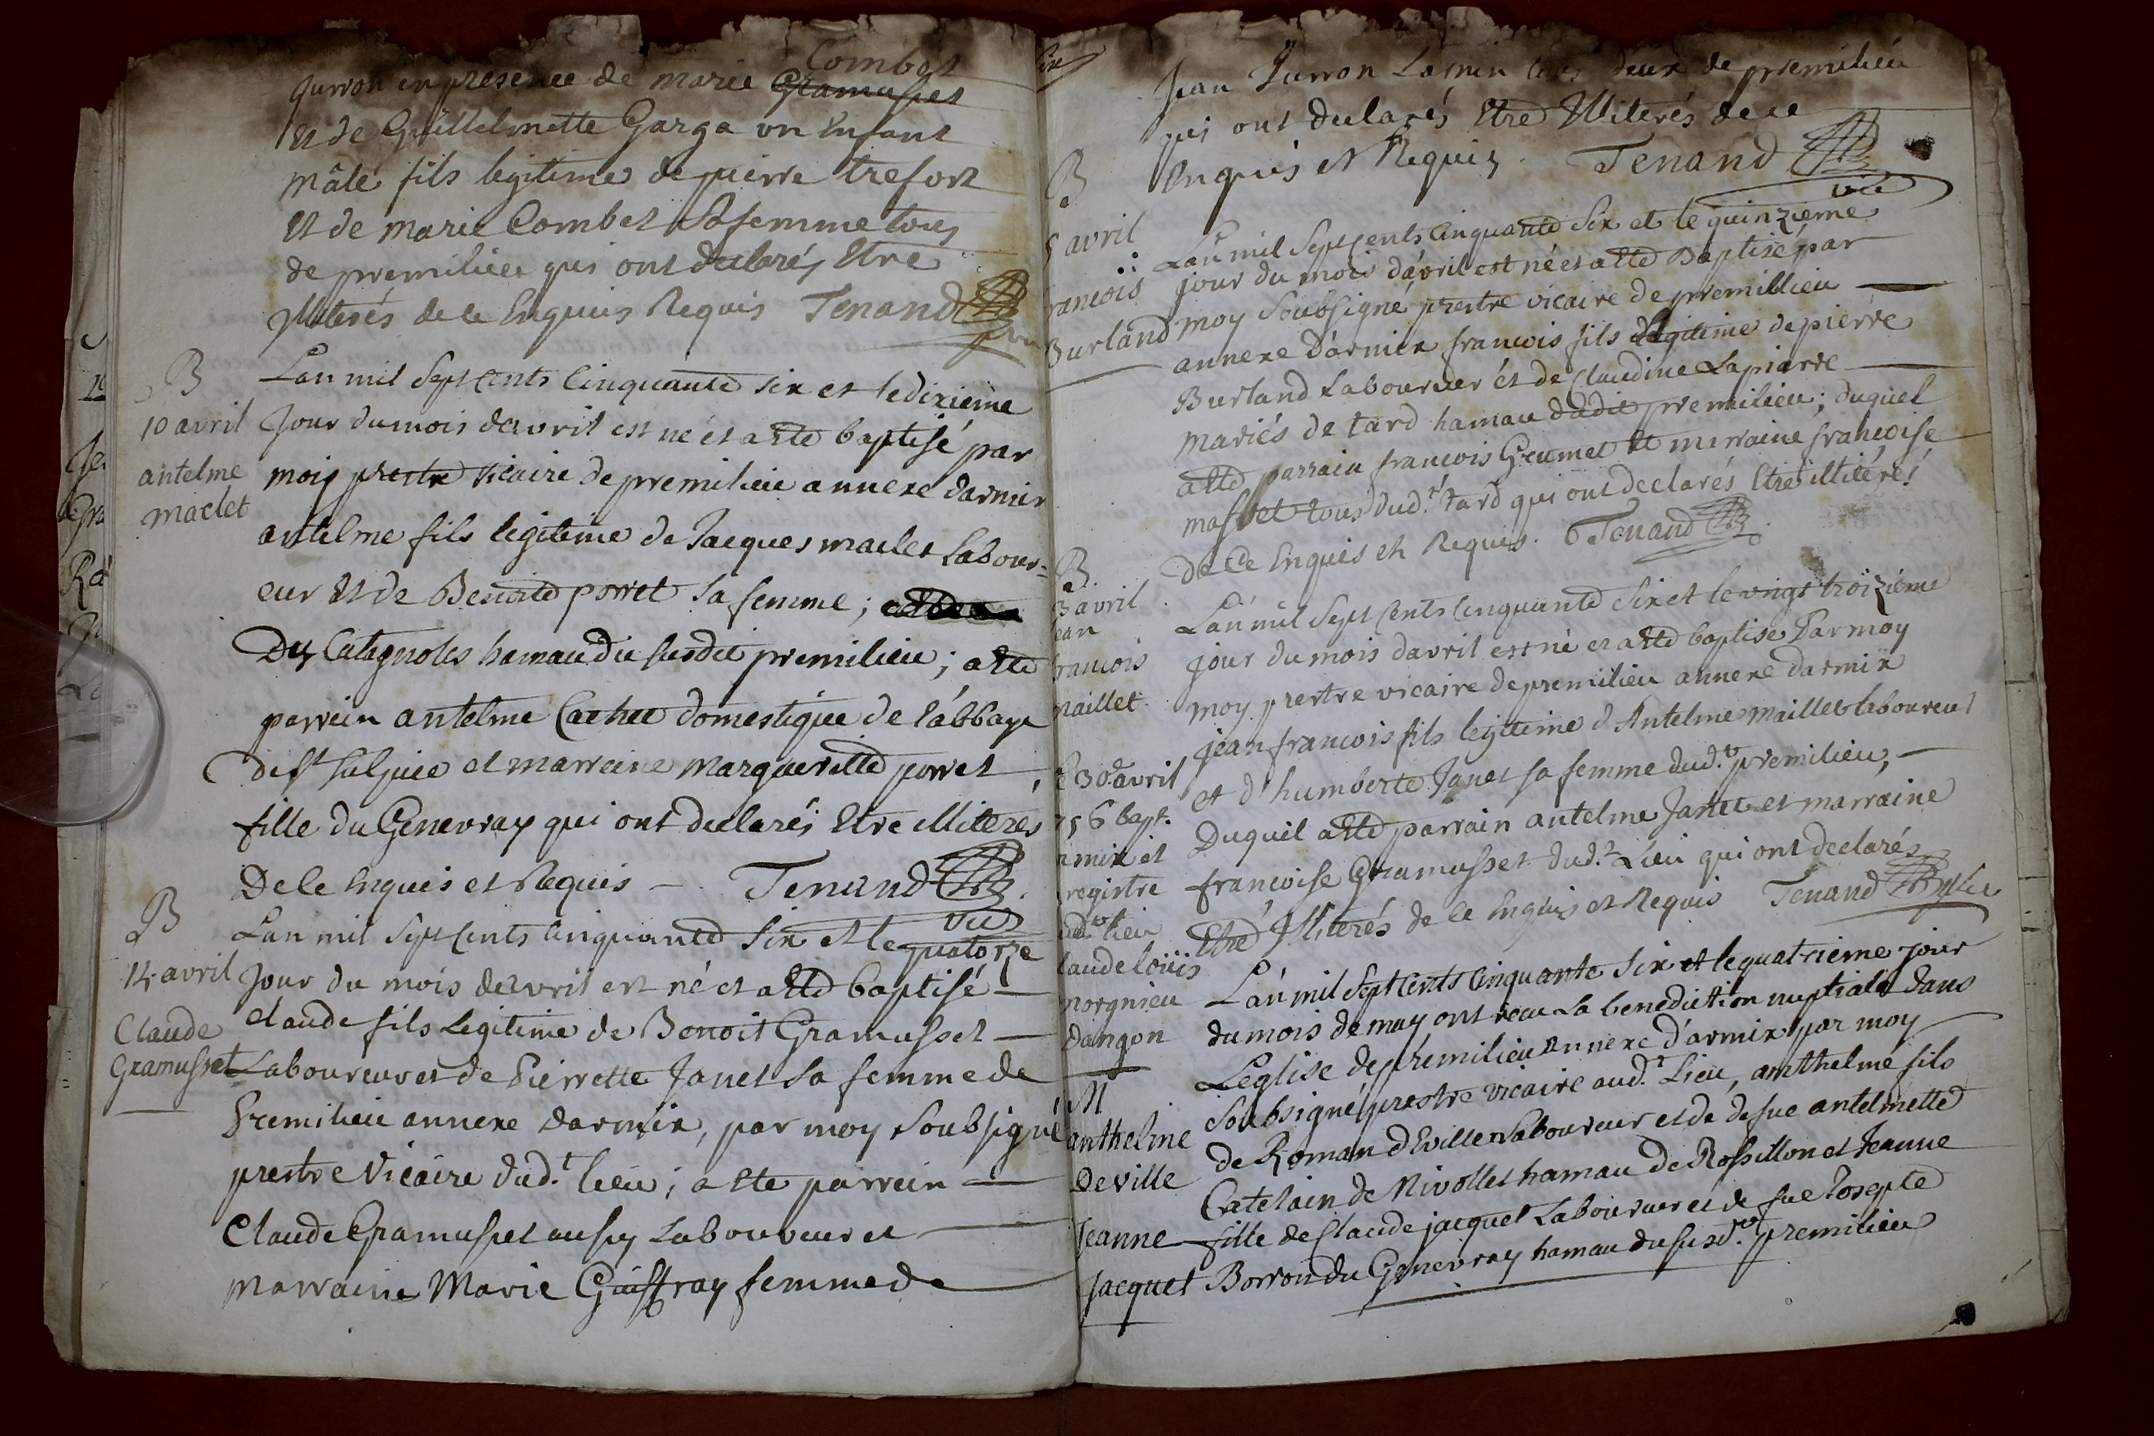 Combet
Gurron en presence de marie Gramusset
et de Guillelmette Garga un Enfant
mâle fils legitime de pierre trefort
Et de marie Combet Sa femme tous
de premilieu qui ont declarés Etre
illiterés de ce Enquis Requis Tenand
B
10 avril
antelme
maclet
Lan mil Sept Cents Cinquante six et le dixieme
Jour du mois davril est né et a ete baptisé par
moy prestre vicaire de premilieu annexe darmix
antelme fils legitime de Jacques maclet Labour-
eur Et de Benoite porret sa femme;
Des Catagnoles hamau du susdit premilieu; a ete
parrein antelme Cachet domestique de l'abbaye
de st Sulpice et marreine margueritte porret
fille du Genevray qui ont declarés Etre illiterés
De ce Enquis et Requis — Tenand
vic
B
14 avril
Claude
Gramusset
Lan mil Sept Cents Cinquante Six et le quatorze
Jour du mois davril est né et a ete baptisé —
claude fils Legitime de Benoit Gramusset —
Laboureur et de Pierrette Janet sa femme de
Premilieu annexe Darmix, par moy Soubsigné
prestre Vicaire dud.t lieu; a ete parrein —
Claude Gramusset aussy Laboureur et —
marraine Marie Guiffray femme de —
Jean Gurron Lainé tous deux de premilieu
qui ont declarés Etre Illiterés de ce
Enquis et Requis. Tenand
vic
B
5 avril
rancois
Burland
L'an mil Sept Cents Cinquante Six et le quinzieme
jour du mois d'avril est né et a ete Baptisé par
moy Soubsigné prestre vicaire de premillieu —
annexe D'armix francois fils Legitime de pierre
Burland Laboureur et de Claudine Lapierre —
mariés de tard hamau dudit premilieu; duquel
a ete parrain francois Grumet et marraine francoise
masset tous dud.t tard qui ont declarés Etre illiterés
De ce Enquis et Requis. Tenand
B
3 avril
ean
rancois
maillet
L'an mil Sept Cents Cinquante Six et le vingt troizieme
jour du mois davril est né et a ete baptise Par moy
moy prestre vicaire de premilieu annexe darmix
jean francois fils legitime d'Antelme maillet laboureur
et d'humberte Janet sa femme dud.t premilieu, —
Duquel a ete parrain antelme Janet et marraine
francoise Gramusset dud.t Lieu qui ont declarés
Etre Illiterés de ce Enquis et Requis Tenand
30 avril
56 bapt.
mix et
registre
dud.t lieu
laude loüis
morgnieu
Dangon
M
anthelme
Deville
Jeanne
Jacquet
L'an mil Sept Cents Cinquante Six et le quatrieme jour
du mois de may ont recu La benediction nuptiale dans
Leglise de premilieu annexe d'armix par moy
Soubsigné prestre vicaire aud.t Lieu, anthelme fils
de Romain dEville Laboureur et de defue antelmette
Catelain de Nivollet hamau de Rossillon et Jeanne
fille de Claude jacquet Laboureur et de fue Josepte
Borron du Genevray hamau du susd.t premilieu